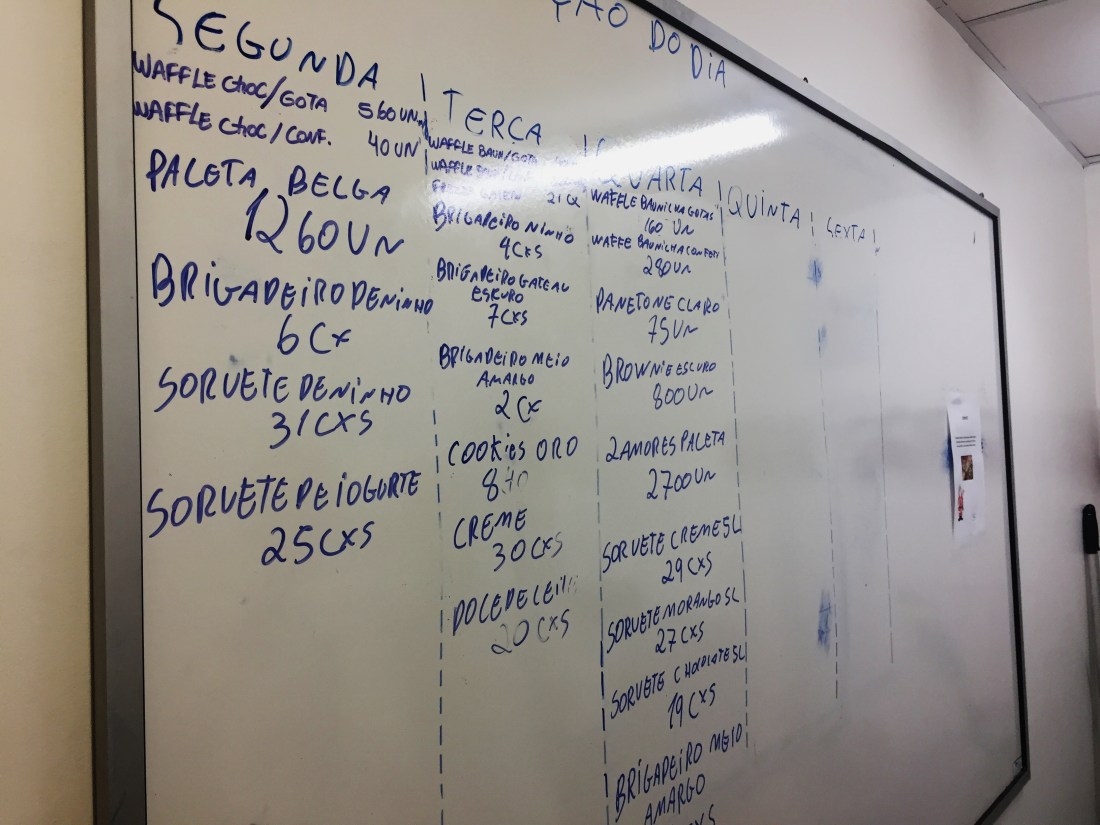 DO DIA
SEGUNDA
WAFFLE CHOC/GOTA 560UN
WAFFLE CHOC/CONF. 40UN
PALETA BELGA
1260UN
BRIGADEIRO DE NINHO
6CX
SORVETE DE NINHO
31CXS
SORVETE DE IOGURTE
25CXS
TERÇA
WAFFLE BAUN/GOTA
WAFFLE
21CX
BRIGADEIRO NINHO
4CXS
BRIGADEIRO GATEAU
ESKURO
7CXS
BRIGADEIRO MEIO
AMARGO
2CX
COOKIES ORO
CREME
30CXS
DOCE DE LEITE
20CXS
QUARTA
WAFFLE BAUNILHA GOTAS
160 UN
WAFFE BAUNILHA CONFETI
280UN
PANETONE CLARO
75UN
BROWNIE ESCURO
800UN
2AMORES PALETA
2700UN
SORVETE CREME SL
29CXS
SORVETE MORANGO SL
27CXS
SORVETE CHOCOLATE SL
19CXS
BRIGADEIRO MEIO
AMARGO
QUINTA
SEXTA